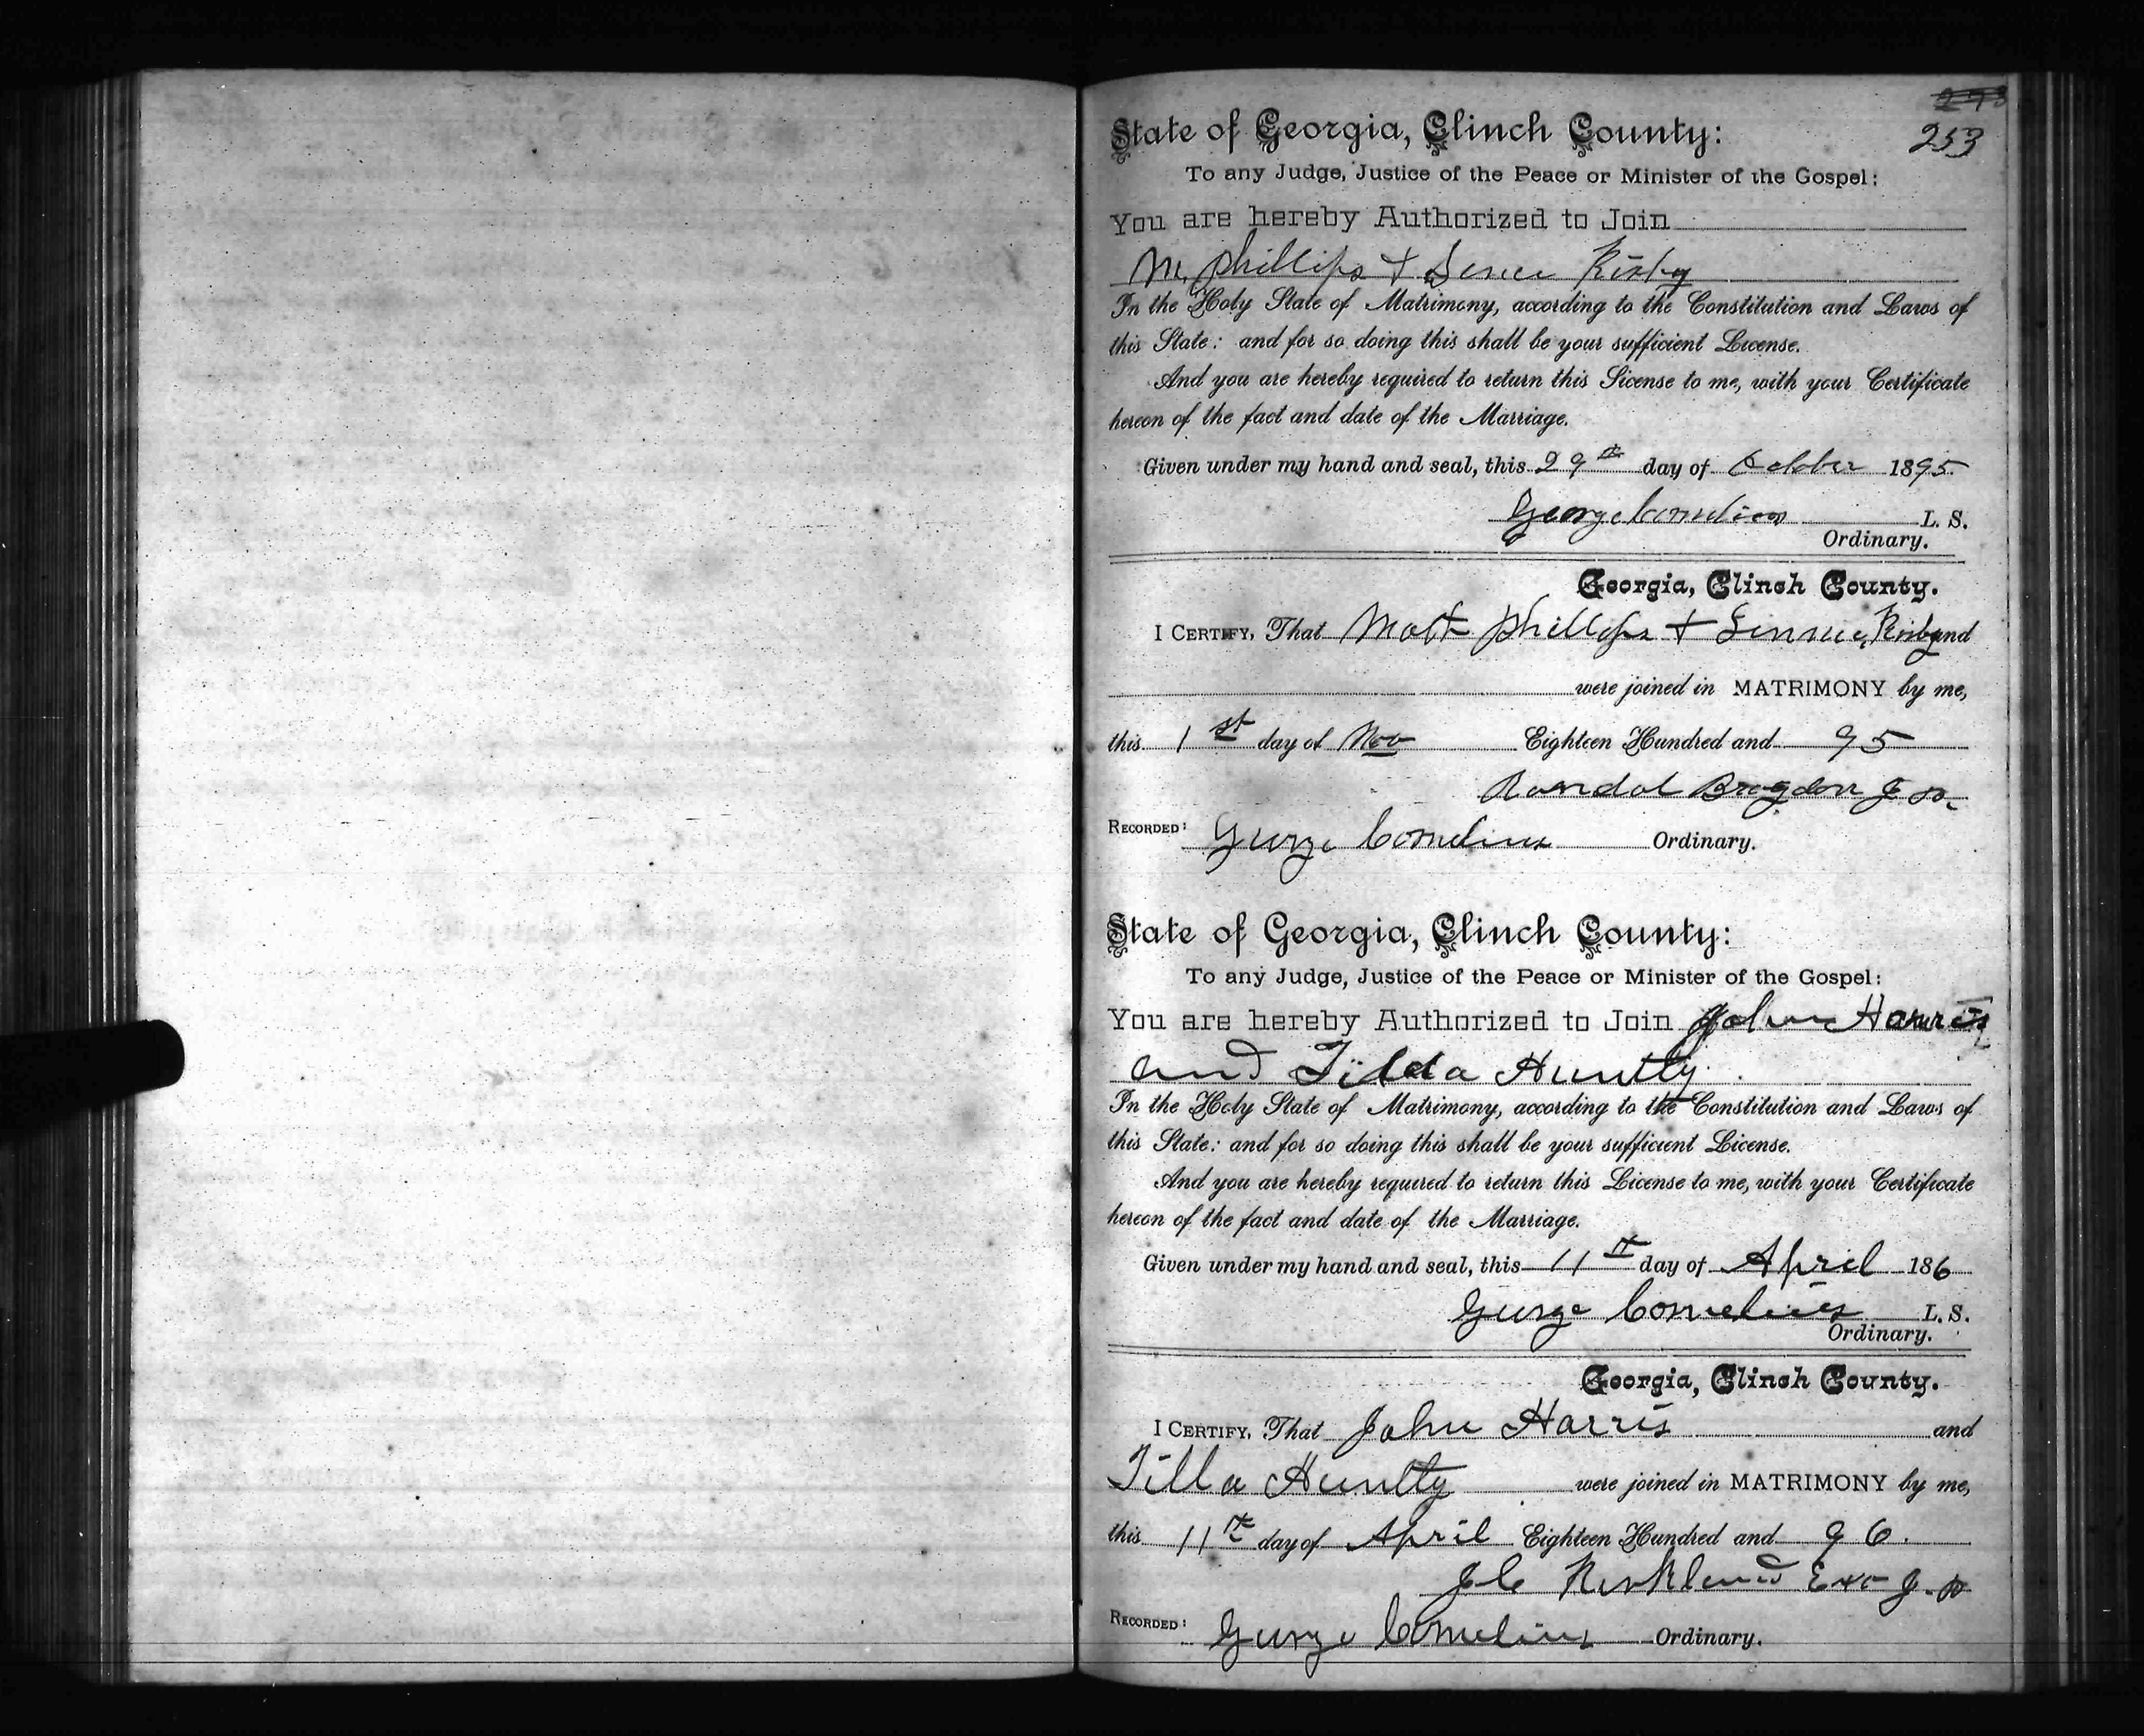 253
State of Georgia, Clinch County:
To any Judge, Justice of the Peace or Minister of the Gospel:
You are hereby Authorized to Join
M. Phillips +
In the Holy State of Matrimony, according to the Constitution and Laws of
this State: and for so doing this shall be your sufficient License.
And you are hereby required to return this License to me, with your Certificate
hereon of the fact and date of the Marriage.
Given under my hand and seal, this 29th day of October 1895
George Cornelius L. S.
Ordinary.
Georgia, Clinch County.
I Certify, That Matt Phillips + and
were joined in MATRIMONY by me,
this 1st day of Nov Eighteen Hundred and 95
Randal Brogdon J P.
Recorded: George Cornelius Ordinary.
State of Georgia, Clinch County:
To any Judge, Justice of the Peace or Minister of the Gospel:
You are hereby Authorized to Join John Harris
and Tilda Huntly.
In the Holy State of Matrimony, according to the Constitution and Laws of
this State: and for so doing this shall be your sufficient License.
And you are hereby required to return this License to me, with your Certificate
hereon of the fact and date of the Marriage.
Given under my hand and seal, this 11th day of April 186
George Cornelius L. S.
Ordinary.
Georgia, Clinch County.
I Certify, That John Harris and
Tilla Huntly were joined in MATRIMONY by me,
this 11th day of April Eighteen Hundred and 96.
J C Kirkland Exo J. P
Recorded: George Cornelius Ordinary.